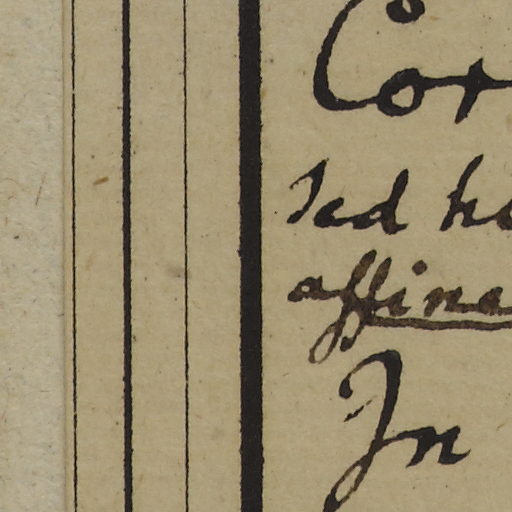 Cor
Sed h
affine
In